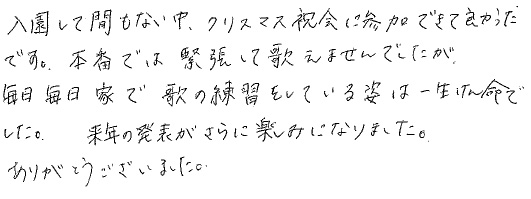 入園して間もない中、クリスマス祝会に参加できて良かった
です。本番では緊張して歌えませんでしたが、
毎日毎日家で歌の練習をしている姿は一生けん命で
した。来年の発表がさらに楽しみになりました。
ありがとうございました。